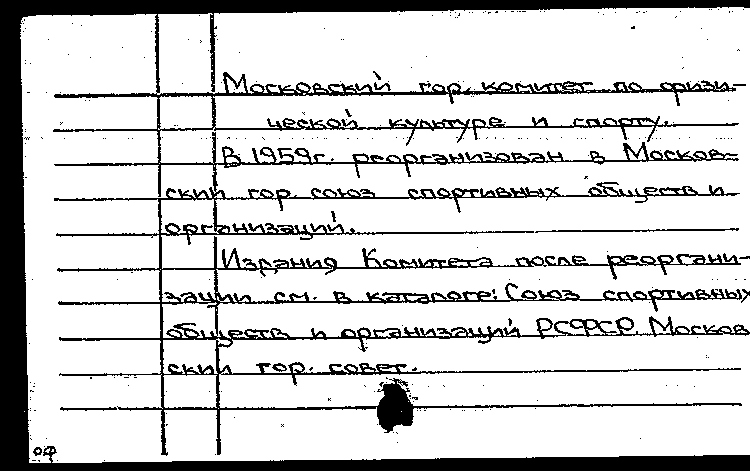 Московский гор. комитет по физи-
ческой культуре и спорту.
В 1959г. реорганизован в Москов-
ский гор. союз спортивных обществ и
организаций.
Издания Комитета после реоргани-
зации см. в каталоге: Союз спортивных
обществ и организаций РСФСР. Москов-
ский гор. совет.
оф